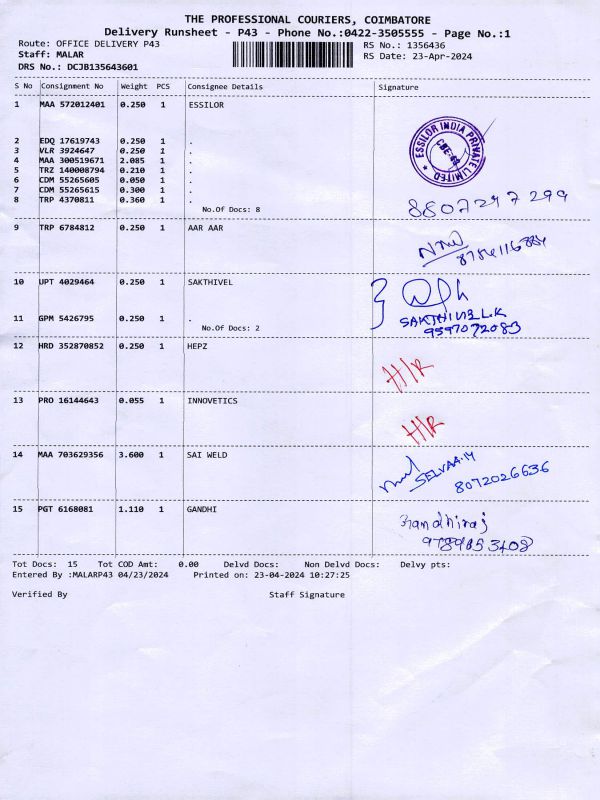 THE PROFESSIONAL COURIERS, COIMBATORE
Delivery Runsheet - P43 - Phone No.:0422-3505555 - Page No.:1
Route: OFFICE DELIVERY P43
RS No.: 1356436
Staff: MALAR
RS Date: 23-Apr-2024
DRS No.: DCJB135643601
S No Consignment No Weight PCS Consignee Details Signature
1 MAA 572012401 0.250 1 ESSILOR
ESSILOR INDIA PRIVATE LIMITED
2 EDQ 17619743 0.250 1 .
3 VLR 3924647 0.250 1 .
4 MAA 300519671 2.085 1 .
5 TRZ 140008794 0.210 1 .
6 CDM 55265605 0.050 1 .
7 CDM 55265615 0.300 1 .
8 TRP 4370811 0.360 1 .
No.Of Docs: 8
8807247299
9 TRP 6784812 0.250 1 AAR AAR
10 UPT 4029464 0.250 1 SAKTHIVEL
11 GPM 5426795 1 .
No.Of Docs: 2
SAKTHIVEL.K
9597072083
12 HRD 352870852 0.250 1 HEPZ
H/R
13 PRO 16144643 0.055 1 INNOVETICS
H/R
14 MAA 703629356 3.600 1 SAI WELD
8072026636
15 PGT 6168081 1.110 1 GANDHI
Tot Docs: 15 Tot COD Amt: 0.00 Delvd Docs: Non Delvd Docs: Delvy pts:
Entered By :MALARP43 04/23/2024 Printed on: 23-04-2024 10:27:25
Verified By Staff Signature